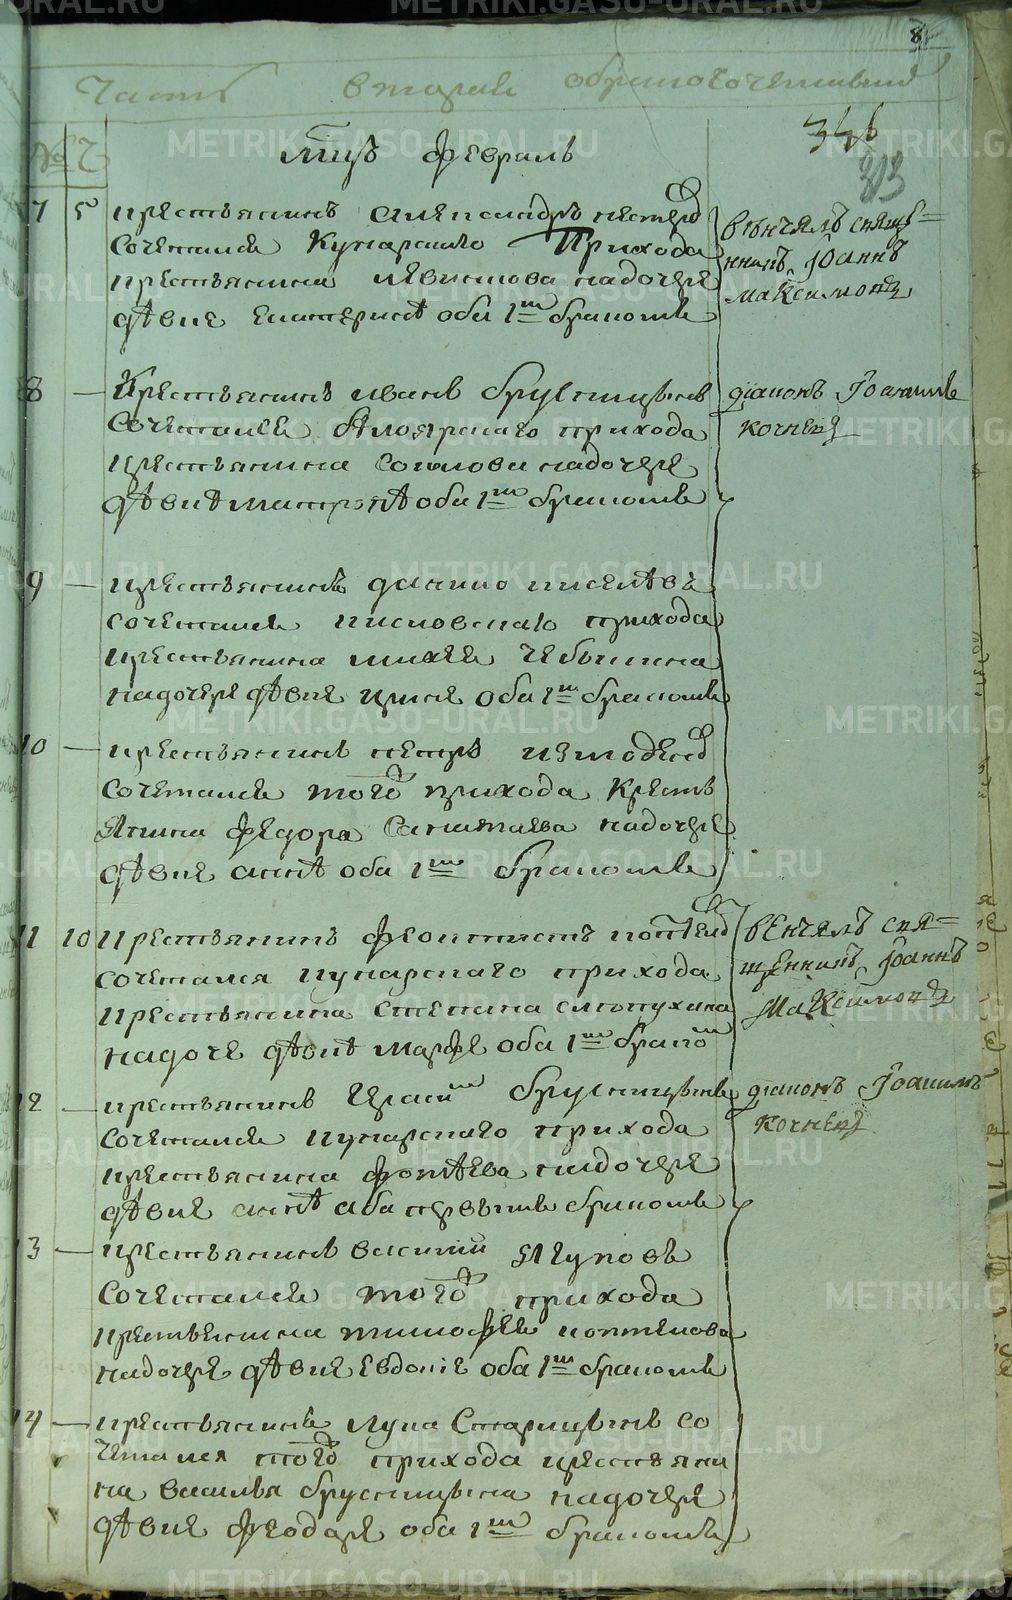 METRIKI.GASO-URAL.RU
8
Часть вторая о бракосочетавшихся
346
313
№ Ч
мцъ февраль
7 5 крестьянинъ александръ
сочетался Кунарскаго прихода
крестьянина левинова на дочере
дѣвке екатеринѣ оба 1мъ бракомъ
вѣнчалъ свяще=
нникъ Іоаннъ
максимовъ
8 — Крестьянинъ иванъ брусницынъ
сочетался бѣлоярскаго прихода
крестьянина соколова на дочере
дѣвкѣ матронѣ оба 1мъ бракомъ
діаконъ Іоакимъ
кочневъ
9 — крестьянинъ данило киселѣвъ
сочетался кисловскаго прихода
крестьянина михея чебыкина
на дочере дѣвке ирине оба 1мъ бракомъ
10 — крестьянинъ петръ измоден
сочетался того прихода Кресть
янина федора на дочере
дѣвке аннѣ оба 1мъ бракомъ
11 10 крестьянинъ феоктистъ коптел
сочетался кунарскаго прихода
крестьянина степана слопухина
на доче дѣвкѣ марфе оба 1мъ брако
венчалъ свя=
щенникъ Іоаннъ
Максимовъ
12 — крестьянинъ брусницынъ
сочетался кунарскаго прихода
крестьянина фотѣева на дочере
дѣвке аннѣ аба первымъ бракомъ
діаконъ Іоакимъ
кочневъ
13 — крестьянинъ василий ягуновъ
сочетался того прихода
крестьянина тимофея коптелова
на дочере дѣвке евдокіе оба 1мъ бракомъ
14 — крестьянинъ лука Старицынъ со
четался того прихода крестьяни
на василья брусницына на дочере
дѣвке феодоре оба 1мъ бракомъ